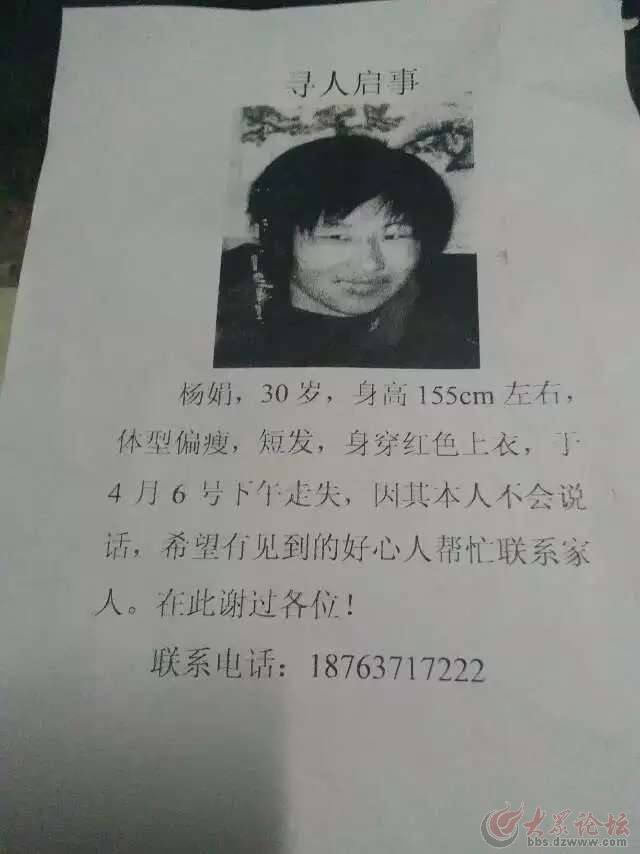 寻人启事
杨娟，30岁，身高155cm左右，
体型偏瘦，短发，身穿红色上衣，于
4月6号下午走失，因其本人不会说
话，希望有见到的好心人帮忙联系家
人。在此谢过各位！
联系电话：18763717222
大众论坛
bbs.dzwww.com